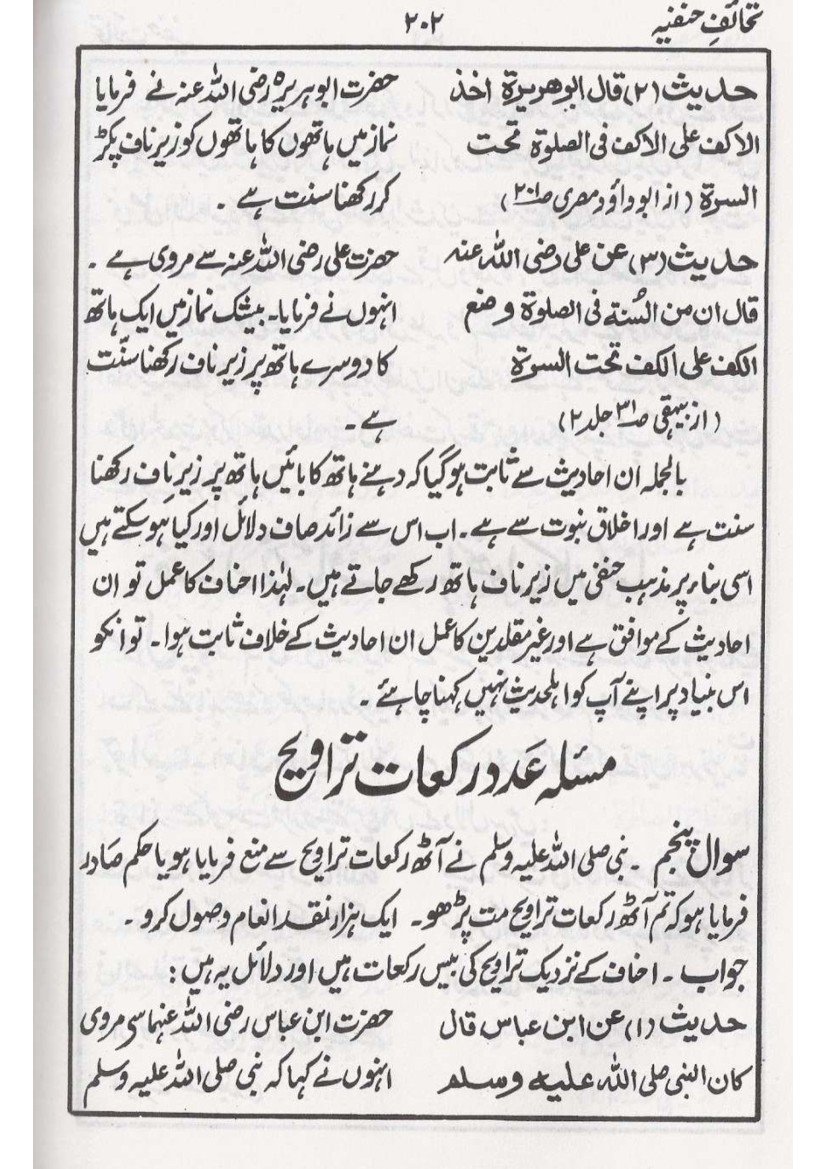 تحائفِ حنفیہ ۲۰۲
حدیث (۲) قال ابوھریرۃ اخذ حضرت ابوہریرہ رضی اللہ عنہ نے فرمایا
الاکف علی الاکف فی الصلوۃ تحت نماز میں ہاتھوں کا ہاتھوں کو زیر ناف پکڑ
السرۃ (از ابوداؤد مصری صـ۲۰۱) کر رکھنا سنت ہے ۔
حدیث (۳) عن علی رضی اللہ عنہ حضرت علی رضی اللہ عنہ سے مروی ہے ۔
قال ان من السُنۃ فی الصلوۃ وضع انہوں نے فرمایا۔ بیشک نماز میں ایک ہاتھ
الکف علی الکف تحت السرۃ کا دوسرے ہاتھ پر زیر ناف رکھنا سنّت
(از بیہقی صـ۳۱ جلد ۲) ہے ۔
بالجملہ ان احادیث سے ثابت ہوگیا کہ دہنے ہاتھ کا بائیں ہاتھ پر زیر ناف رکھنا
سنت ہے اور اخلاق نبوت سے ہے۔ اب اس سے زائد صاف دلائل اور کیا ہو سکتے ہیں
اسی بناء پر مذہب حنفی میں زیر ناف ہاتھ رکھے جاتے ہیں۔ لہٰذا احناف کا عمل تو ان
احادیث کے موافق ہے اور غیر مقلدین کا عمل ان احادیث کے خلاف ثابت ہوا۔ تو انکو
اس بنیاد پر اپنے آپ کو اہلحدیث نہیں کہنا چاہئے ۔
مسئلہ عدد رکعات تراویح
سوال پنجم ۔ نبی صلی اللہ علیہ وسلم نے آٹھ رکعات تراویح سے منع فرمایا ہو یا حکم صادر
فرمایا ہو کہ تم آٹھ رکعات تراویح مت پڑھو۔ ایک ہزار نقد انعام وصول کرو ۔
جواب ۔ احناف کے نزدیک تراویح کی بیس رکعات ہیں اور دلائل یہ ہیں :
حدیث (۱) عن ابن عباس قال حضرت ابن عباس رضی اللہ عنہما سی مروی
کان النبی صلی اللہ علیہ وسلم انہوں نے کہا کہ نبی صلی اللہ علیہ وسلم